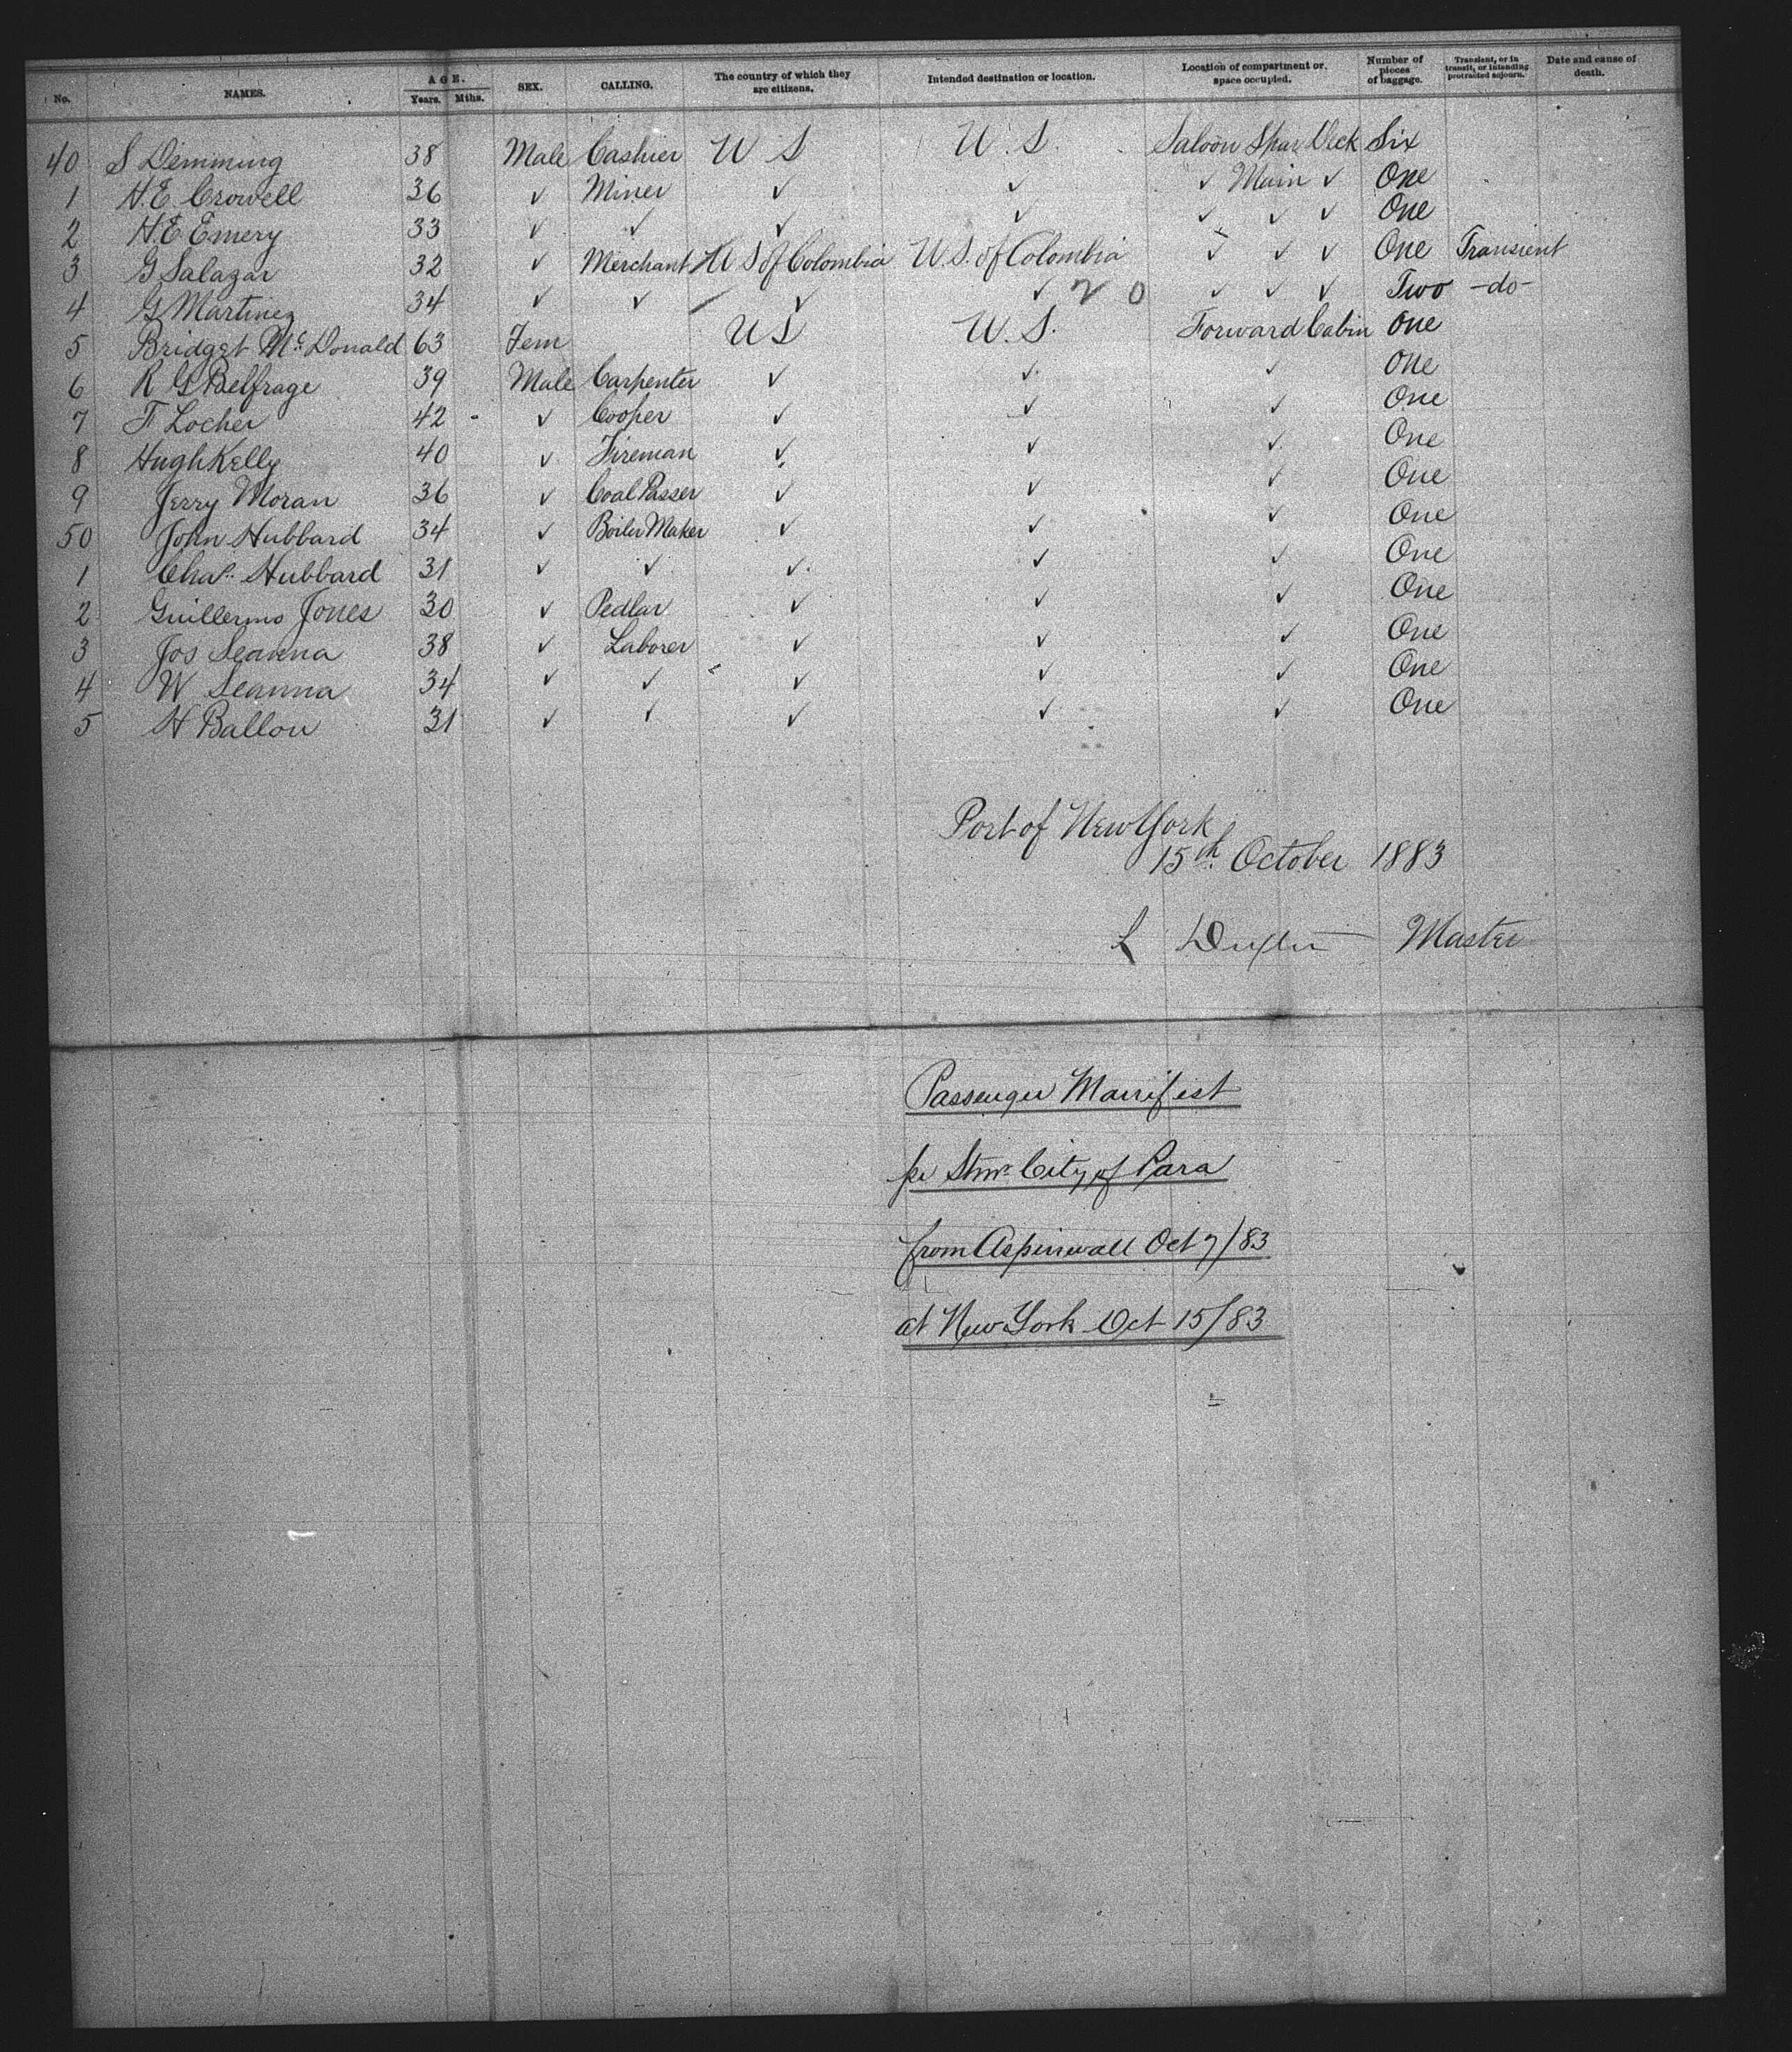 No. NAMES. AGE. Years. Mths. SEX. CALLING. The country of which they are citizens. Intended destination or location. Location of compartment or space occupied. Number of pieces of baggage. Transient, or in transit, or intending protracted sojourn. Date and cause of death.
40 S Demming 38 Male Cashier U S U.S. Saloon Spar Deck Six
1 H.E. Crowell 36 ✓ Miner ✓ ✓ ✓ Main ✓ One
2 H.E. Emery 33 ✓ ✓ ✓ ✓ ✓ ✓ ✓ One
3 G Salazar 32 ✓ Merchant U S of Colombia U.S. of Colombia ✓ ✓ ✓ One Transient
4 G Martinez 34 ✓ ✓ ✓ ✓ 20 ✓ ✓ ✓ Two -do-
5 Bridget McDonald 63 Fem U S U.S. Forward Cabin One
6 R G Belfrage 39 Male Carpenter ✓ ✓ ✓ One
7 F Locher 42 ✓ Cooper ✓ ✓ ✓ One
8 Hugh Kelly 40 ✓ Fireman ✓ ✓ ✓ One
9 Jerry Moran 36 ✓ Coal Passer ✓ ✓ ✓ One
50 John Hubbard 34 ✓ Boiler Maker ✓ ✓ ✓ One
1 Chas. Hubbard 31 ✓ ✓ ✓ ✓ ✓ One
2 Guillermo Jones 30 ✓ Pedlar ✓ ✓ ✓ One
3 Jos 38 ✓ Laborer ✓ ✓ ✓ One
4 W 34 ✓ ✓ ✓ ✓ ✓ One
5 H Ballou 31 ✓ ✓ ✓ ✓ ✓ One
Port of New York
15th October 1883
L Master
Passenger Manifest
pr Stmr City of Para
from Aspinwall Oct 7/83
at New York Oct 15/83